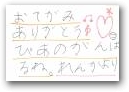 おてがみ
ありがとう
ぴあのがんば
ろね。れんかより